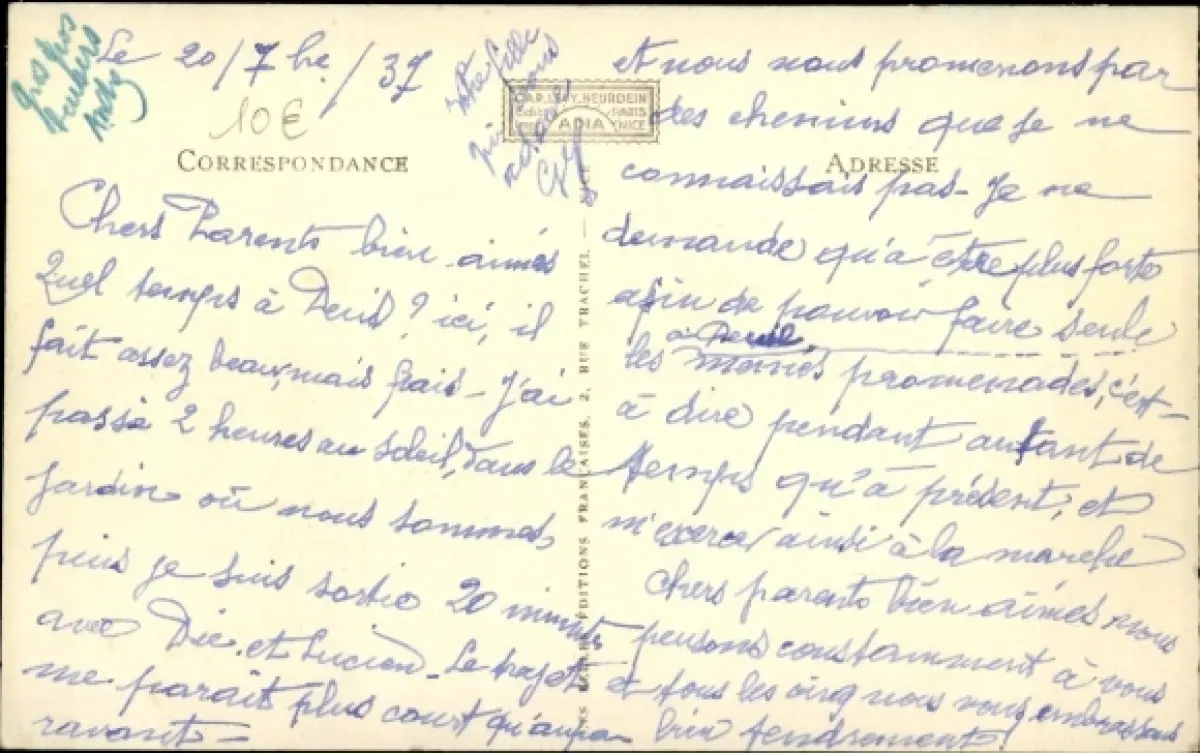 Le 20/7bre/37
10€
Gros gros
baisers
CORRESPONDANCE
Chers Parents bien aimés
Quel temps à Deuil? ici, il
fait assez beau, mais frais - J'ai
passé 2 heures au soleil, dans le
jardin où nous sommes,
puis je suis sortie 20 minutes
avec Die. et Lucien - Le trajet
me paraît plus court qu'aupa-
ravant -
votre fille
qui vous
CAP. LEVY. NEURDEIN
PARIS
ADIA NICE
ÉDITIONS FRANÇAISES, 2, RUE TRACHEL — NICE
ADRESSE
et nous nous promenons par
des chemins que je ne
connaissais pas - Je ne
demande qu'à être plus forte
afin de pouvoir faire seule
à Deuil,
les mêmes promenades, c'est-
à dire pendant autant de
temps qu'à présent, et
m'exercer ainsi à la marche
Chers parents bien aimés nous
pensons constamment à vous
et tous les cinq nous vous embrassons
bien tendrement